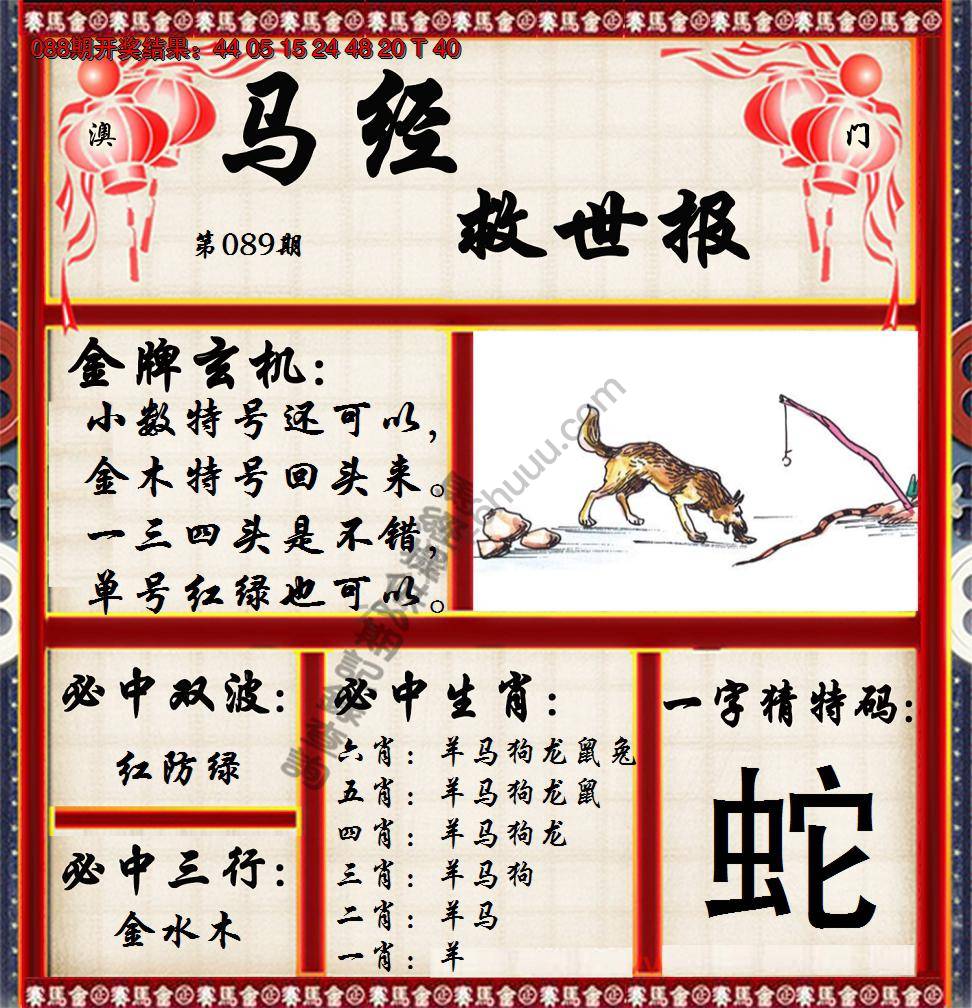 赛馬會
088期开奖结果：44 05 15 24 48 20 T 40
澳
门
马经
救世报
第089期
金牌玄机：
小数特号还可以，
金木特号回头来。
一三四头是不错，
单号红绿也可以。
必中双波：
红防绿
必中三行：
金水木
必中生肖：
六肖：羊马狗龙鼠兔
五肖：羊马狗龙鼠
四肖：羊马狗龙
三肖：羊马狗
二肖：羊马
一肖：羊
一字猜特码：
蛇